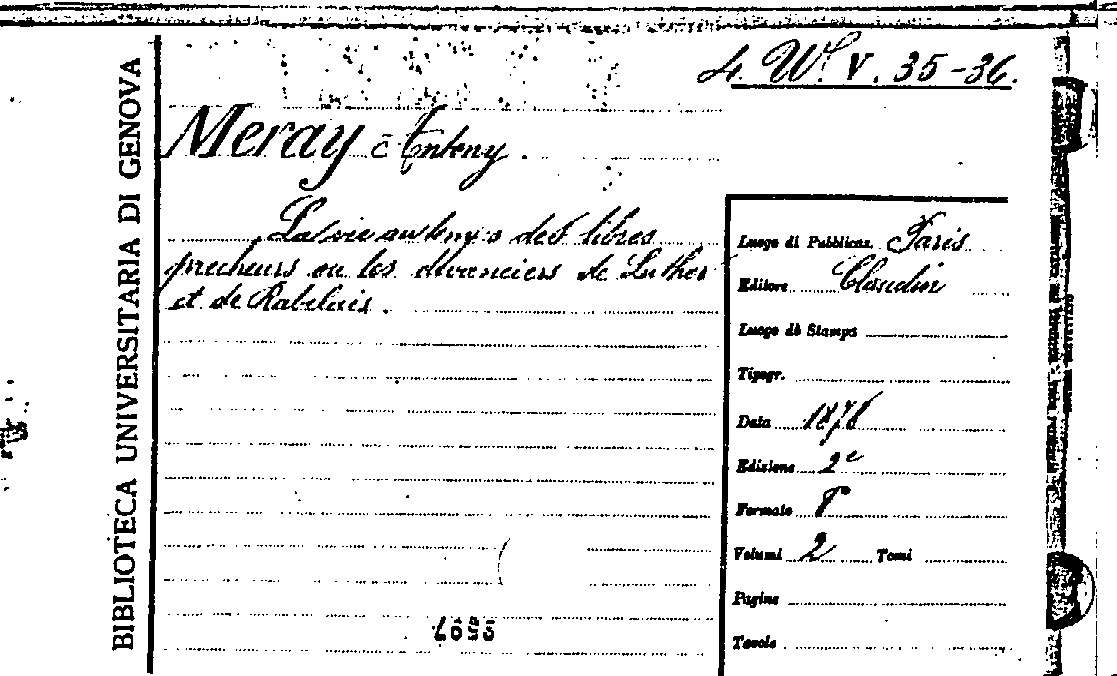 BIBLIOTECA UNIVERSITARIA DI GENOVA
4. W. V. 35-36.
Meray Anteny.
La vie au temps des libres
precheurs ou les devanciers de Luther
et de Rabelais.
Luogo di Pubblicaz. Paris
Editore Claudin
Luogo di Stampa
Tipogr.
Data 1878
Edizione 2e
Formato 8°
Volumi 2 Tomi
Pagine
Tavole